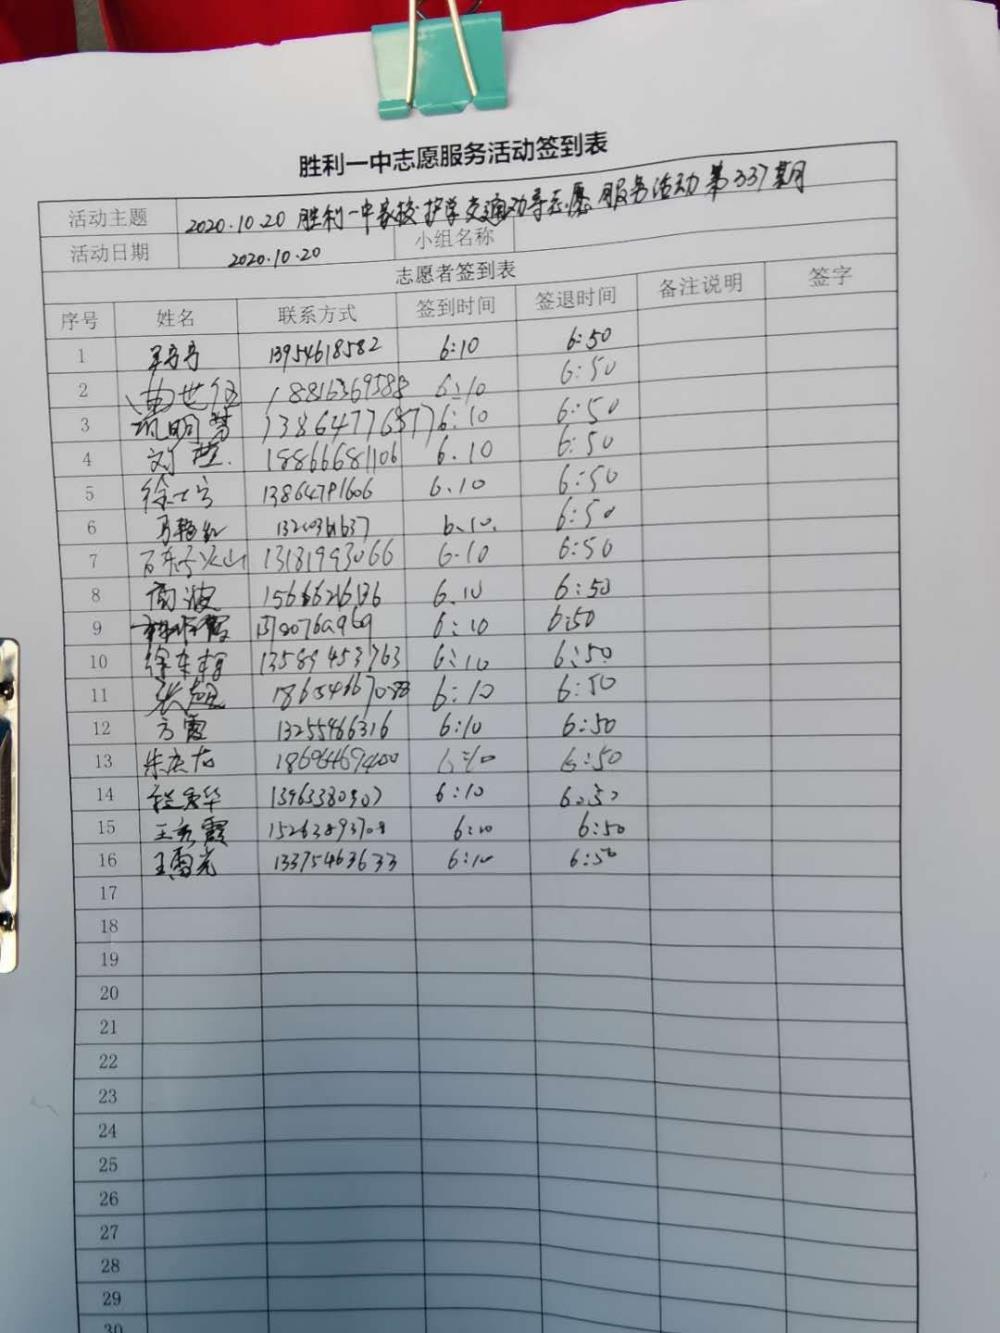 胜利一中志愿服务活动签到表
活动主题 2020.10.20 胜利一中家校护学交通劝导志愿服务活动第337期
活动日期 2020.10.20 小组名称
志愿者签到表
序号 姓名 联系方式 签到时间 签退时间 备注说明 签字
1 13954618582 6:10 6:50
2 曲世 18816369588 6:10 6:50
3 明慧 13864776877 6:10 6:50
4 刘 18866681106 6.10 6:50
5 徐 13864791606 6.10 6:50
6 马艳红 6.10. 6:50
7 13181993066 6.10 6:50
8 波 6.10 6:50
9 6:10 6:50
10 徐东 13589453763 6:10 6:50
11 张超 6:10 6:50
12 方霞 13255466316 6:10 6:50
13 朱 18696469400 6:10 6:50
14 程秀华 13963380507 6:10 6.50
15 王秀霞 15263893708 6:10 6:50
16 王雷光 13375463633 6:10 6:50
17
18
19
20
21
22
23
24
25
26
27
28
29
30